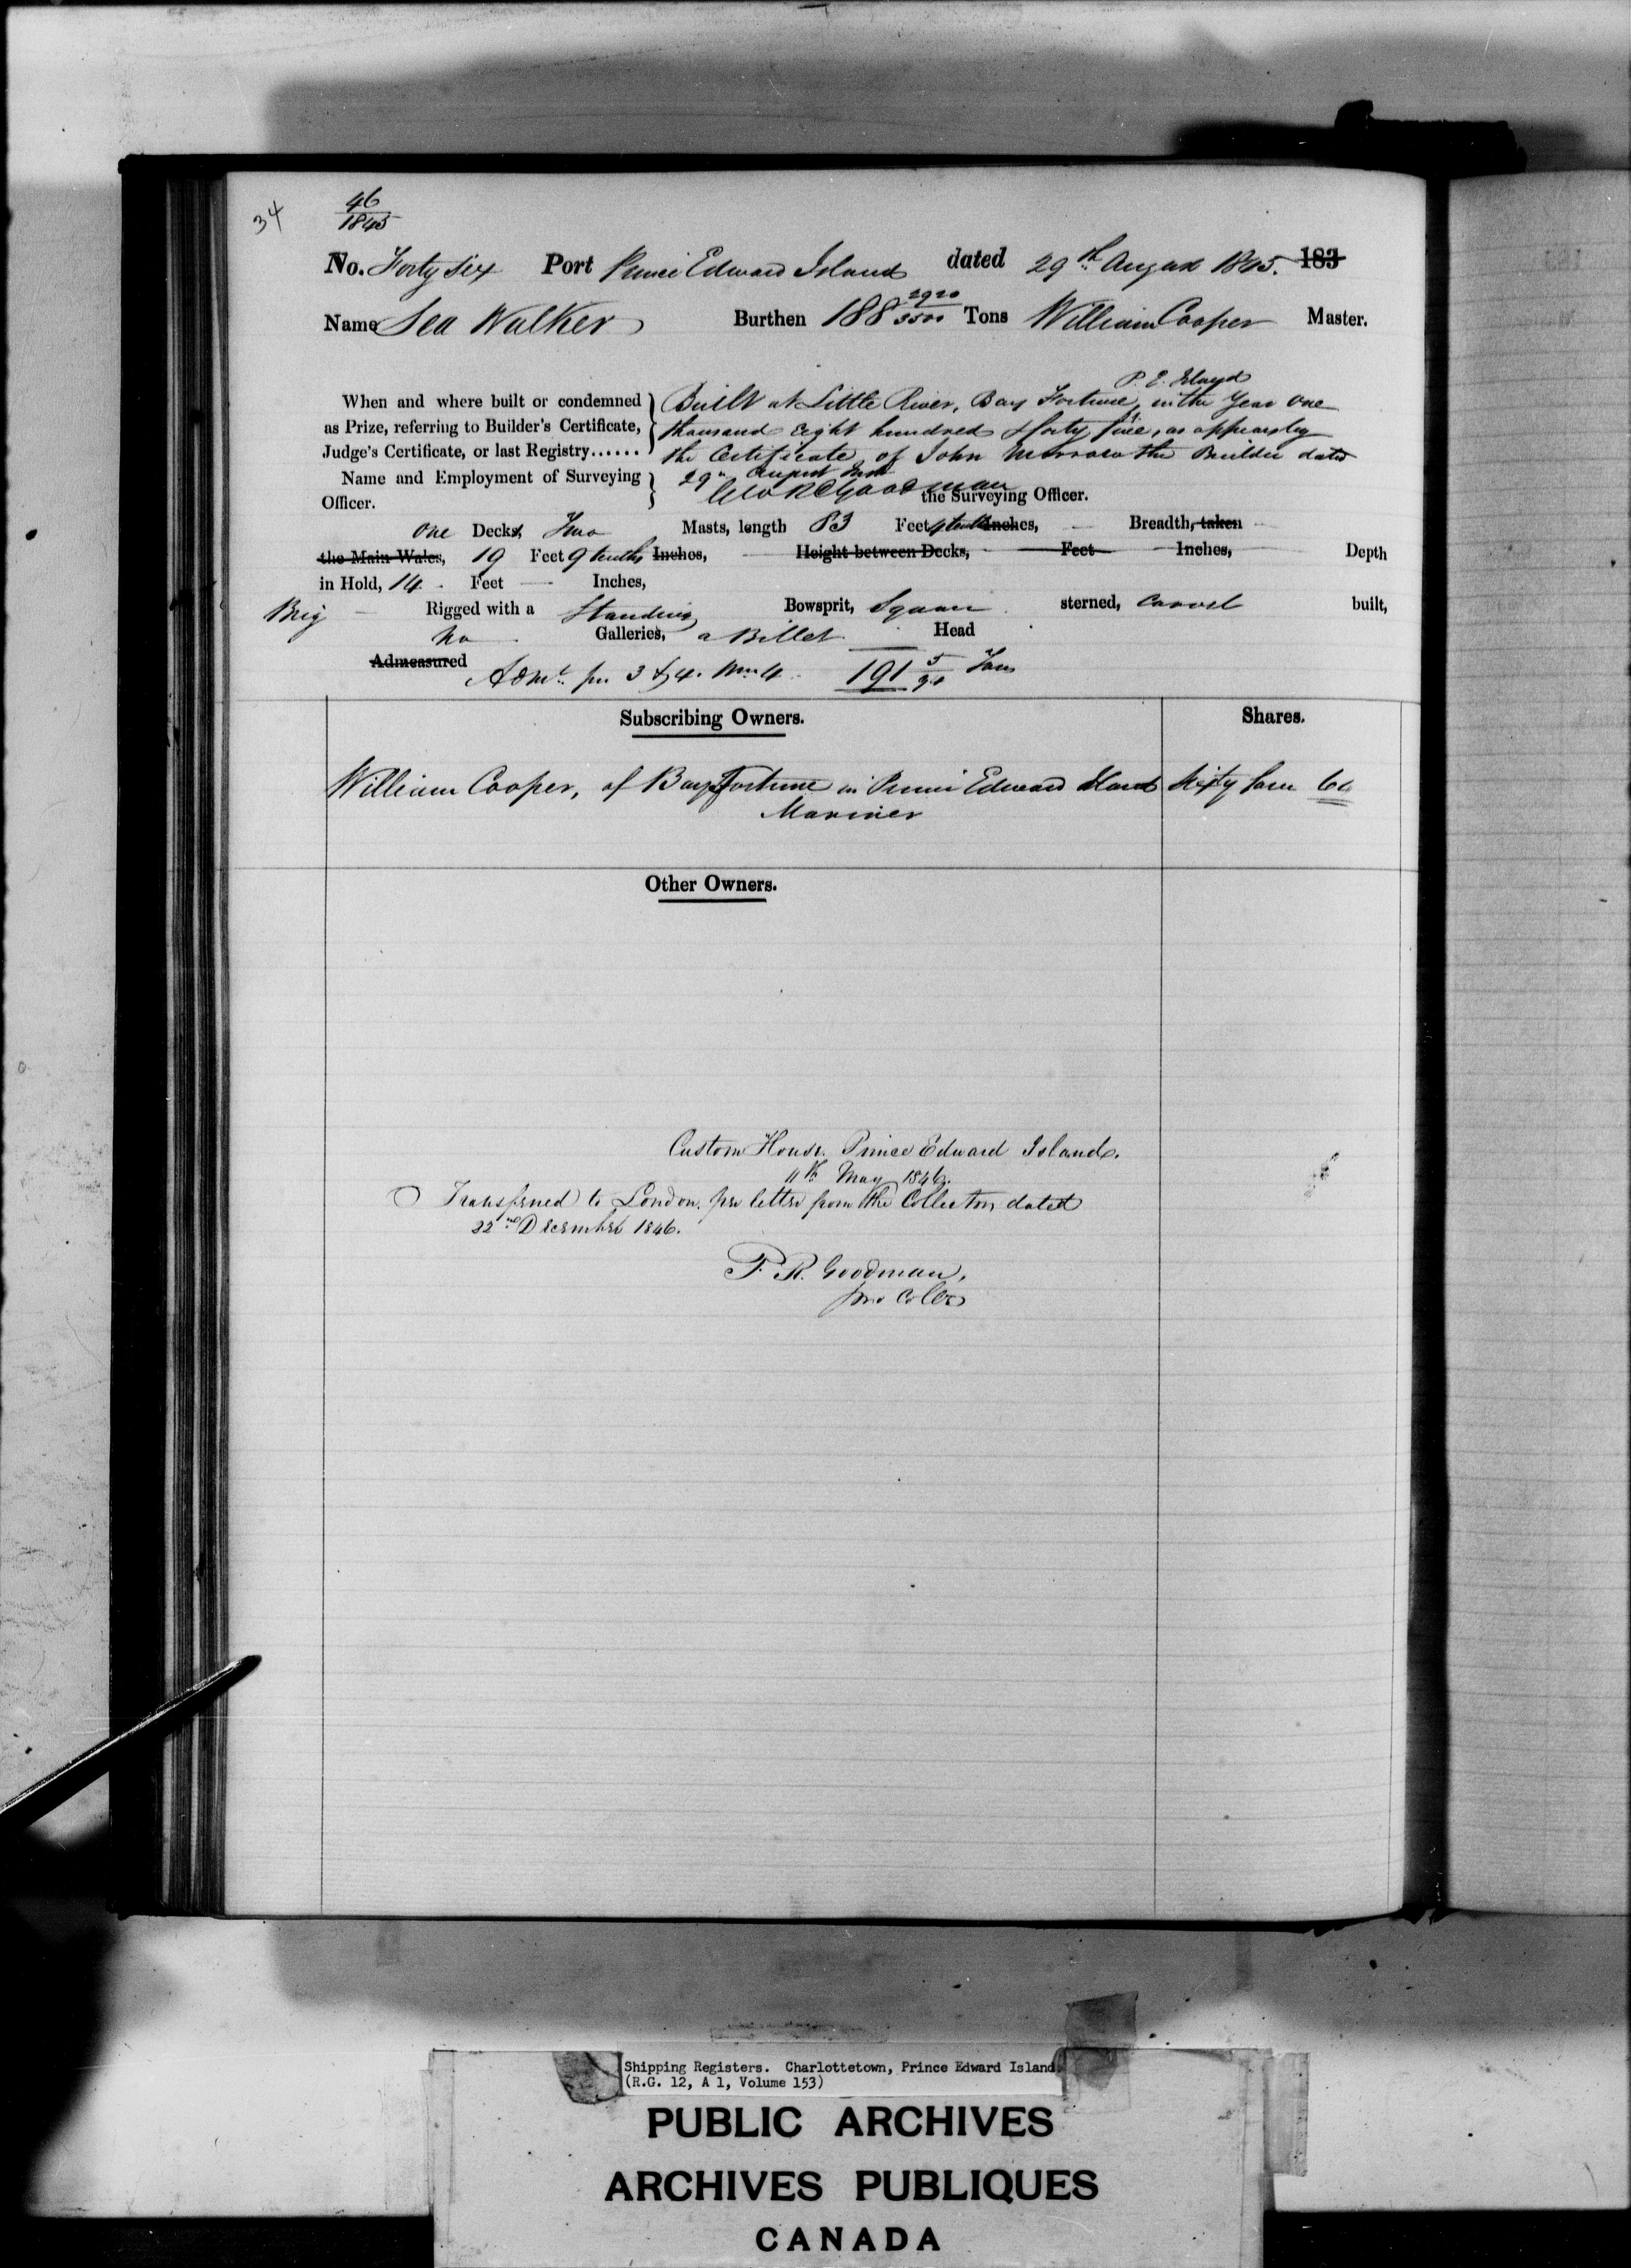 34
46
1845
No. Forty Six Port Prince Edward Island dated 29th August 1845. 183
Name Sea Walker Burthen 188 2920/3500 Tons William Cooper Master.
P. E. Island
When and where built or condemned Built at Little River, Bay Fortune, in the Year One
as Prize, referring to Builder's Certificate, thousand Eight hundred & forty five, as appears by
Judge's Certificate, or last Registry...... the Certificate of John Morrow the Builder dated
Name and Employment of Surveying 29th August
Officer. Geo R Goodman the Surveying Officer.
One Decks, Two Masts, length 83 Feet 4 tenths Inches, Breadth, taken
the Main Wales, 19 Feet 9 tenths Inches, Height between Decks, Feet Inches, Depth
in Hold, 14 Feet Inches,
Brig Rigged with a Standing Bowsprit, Square sterned, Carvel built,
No Galleries, a Billet Head
Admeasured Adm.t pr 3 & 4. Wm 4. 191 5/94 Tons
Subscribing Owners. Shares.
William Cooper, of Bay Fortune in Prince Edward Island Sixty four 64
Mariner
Other Owners.
Custom House. Prince Edward Island.
11th May 1846.
Transferred to London. per letter from the Collector, dated
22nd December 1846.
F. R. Goodman,
pro Coller
Shipping Registers. Charlottetown, Prince Edward Island
(R.G. 12, A 1, Volume 153)
PUBLIC ARCHIVES
ARCHIVES PUBLIQUES
CANADA